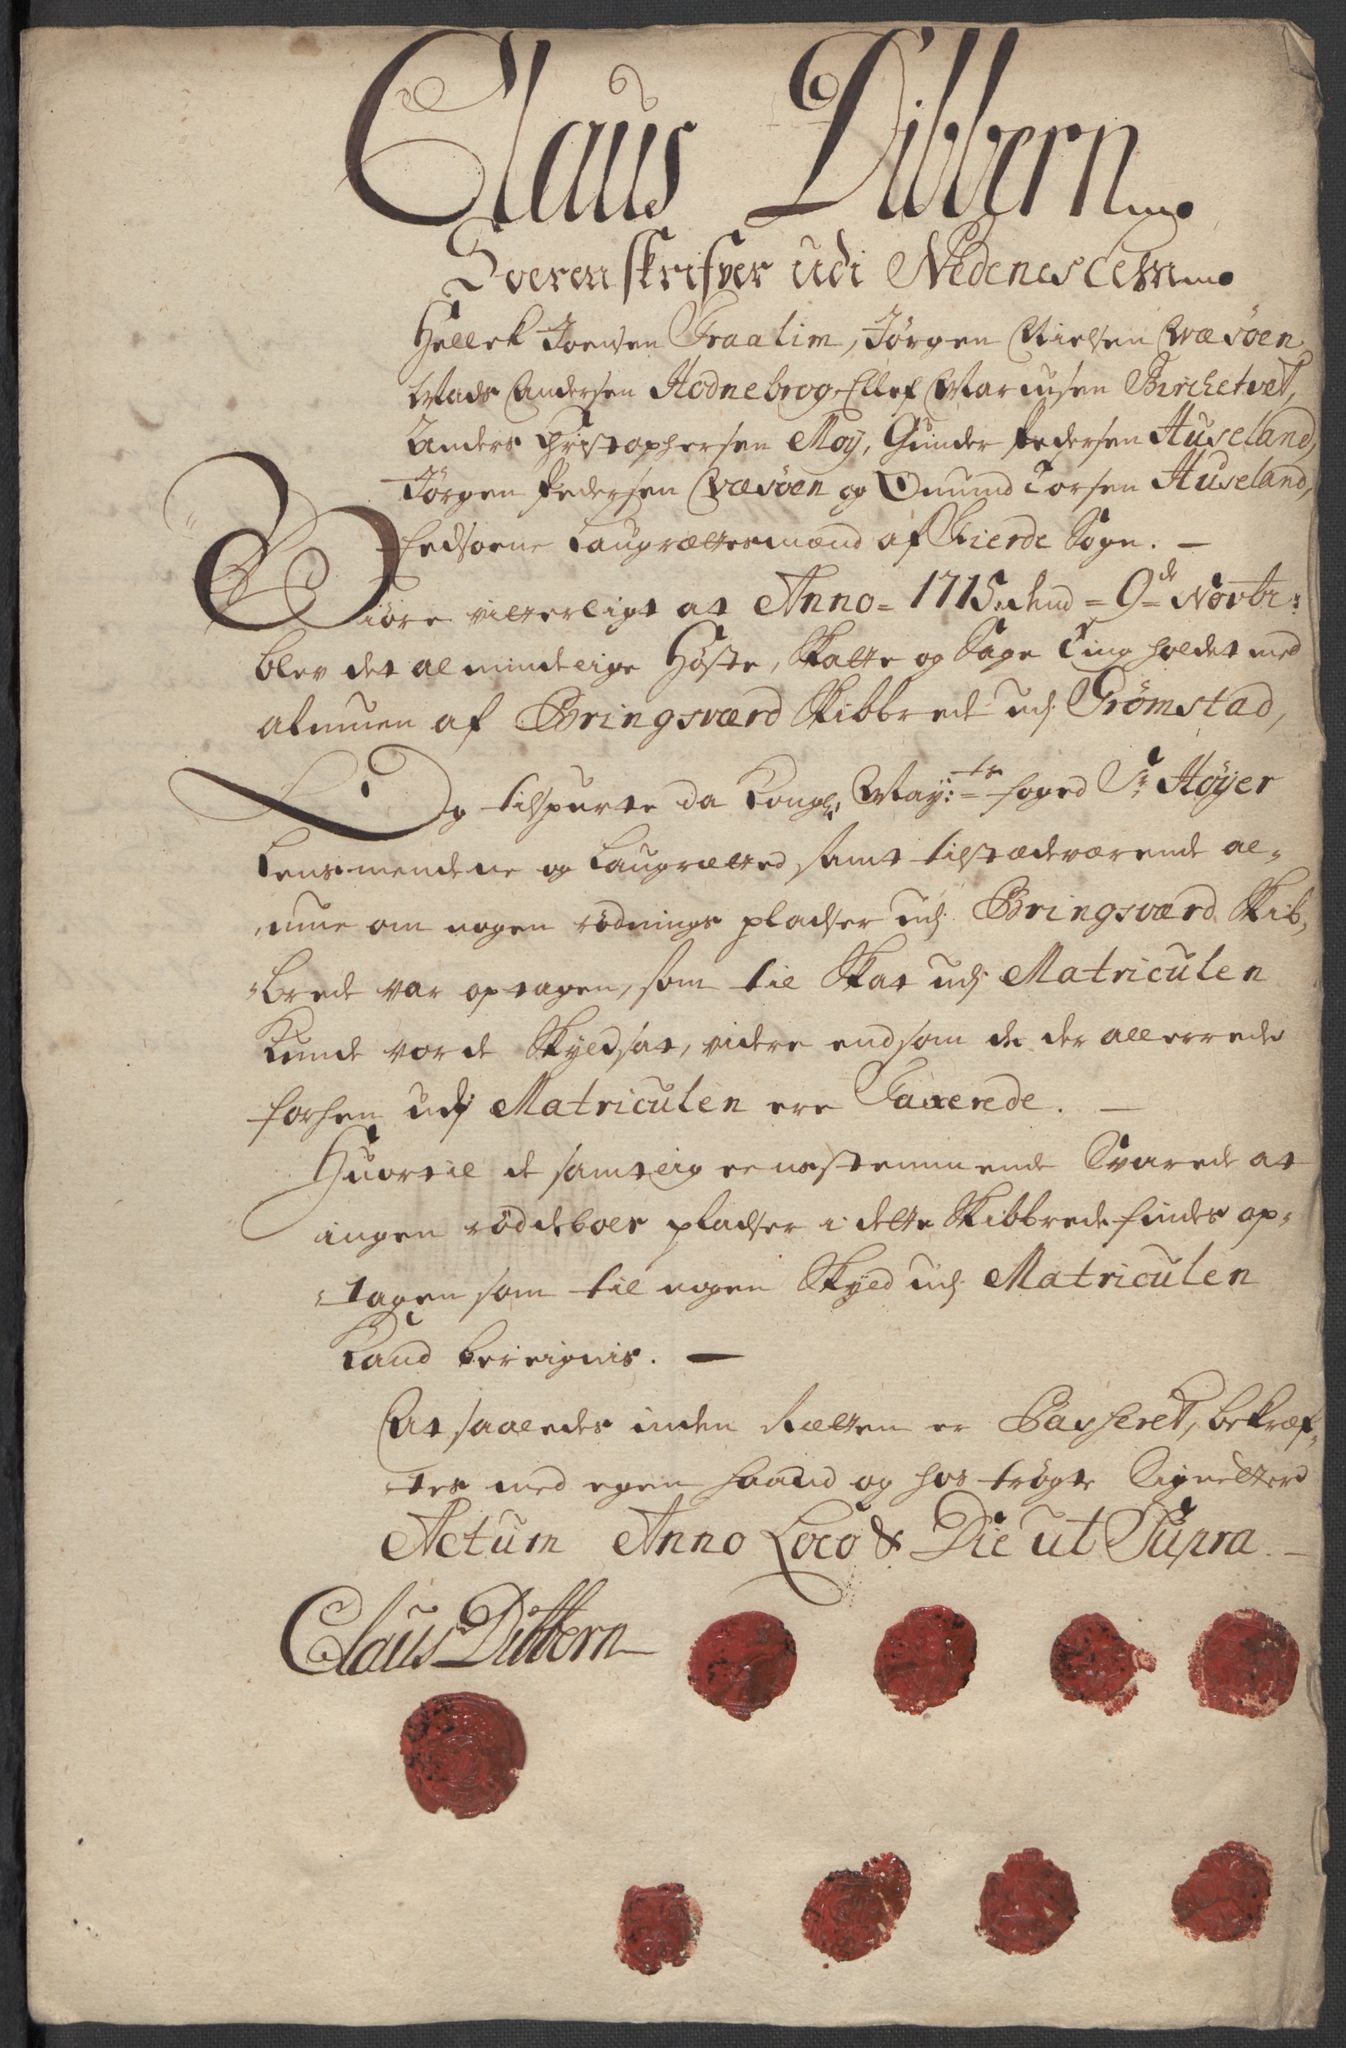 Claus Dibbern
Sorenskrifver udi Nedenes Lehn
Hellek Joensen Traalim, Jørgen Nielsen Næsöen
Mads Andersen Hodnebrog, Ellef Marcusen Birchetvet,
Anders Christophersen Moy, Gunder Pedersen Huseland,
Jörgen Pedersen Næsöen og Onund Torsen Huseland,
Eedsorne Laugrettesmænd af Hierde Sogn. —
Giöre vitterligt at Anno = 1715. dend = 9de Novbr:
blev det almindelige Höste, Skatte og Sage Ting holdet med
almuen af Bringsværd Skibbrede udj Grömstad,
Og tilspurte da Kongl: May:ts foged Sr Höyer
Lensmendene og Laugretted samt tilstædeværende al-
mue om nogen rödnings pladser udj Bringsværd Skib-
brede var optagen, som til Skat udj Matriculen
Kunde vorde Skyldsat, videre end som de der allerrede
forhen udj Matriculen ere Taxerede. —
Huortil de samtlig eenstemmende Svarede at
ingen röddeboes pladser i dette Skibbrede findes op-
tagen som til nogen Skyld udj Matriculen
Kand bereignis. —
At saaledes inden Retten er Passeret, bekræf-
tes med egen haand og hos trögte Signetter
Actum Anno Loco & Die ut Supra —
Claus Dibbern